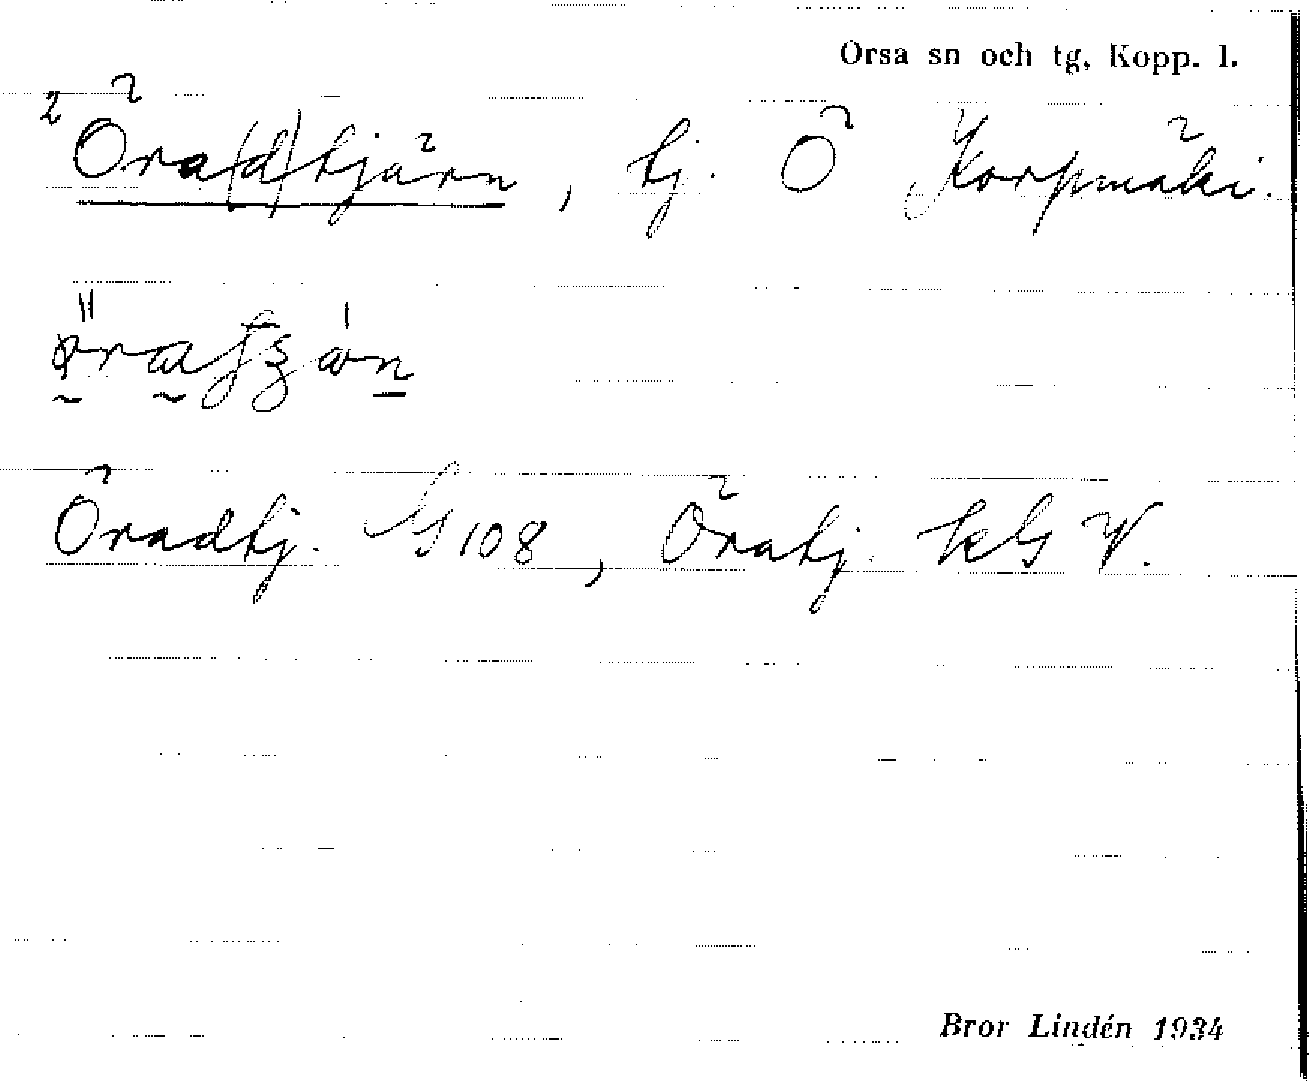 Orsa sn och tg, Kopp. l.
2 Öra(d)tjärn, tj. Ö Korpmäki.
Öradtj. G 108, Öratj. kG V.
Bror Lindén 1934